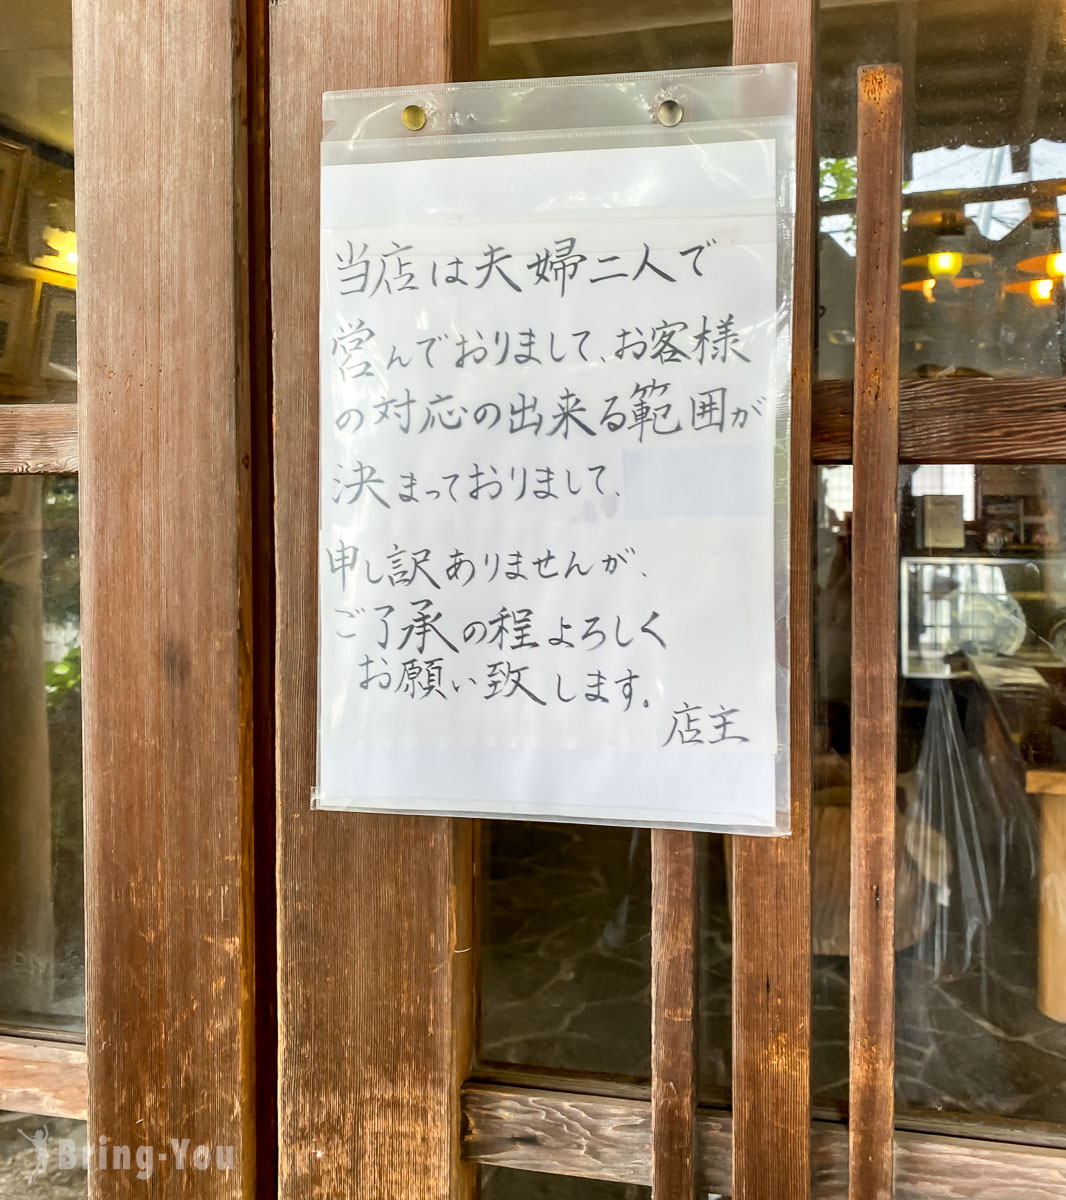 当店は夫婦二人で
営んでおりまして、お客様
の対応の出来る範囲が
決まっておりまして、
申し訳ありませんが、
ご了承の程よろしく
お願い致します。
店主
Bring-You